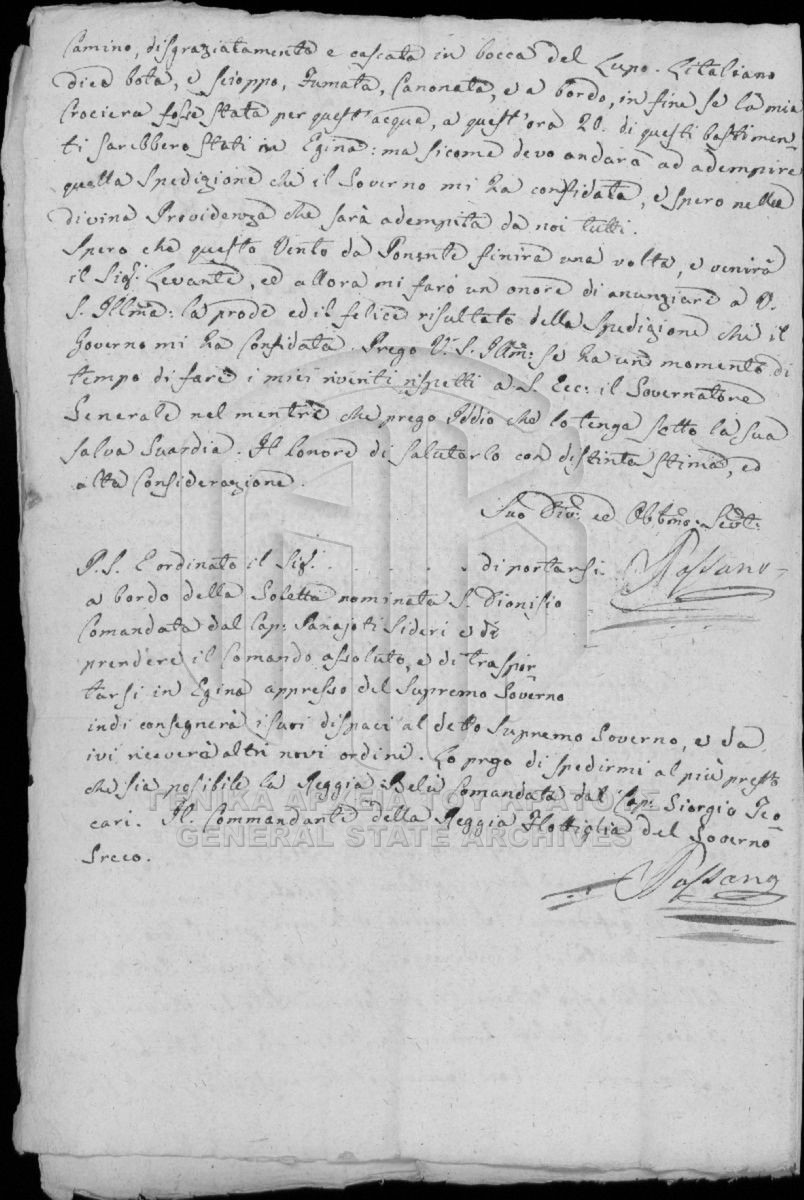 Camino, disgraziatamente e cascata in bocca del Lupo. L'italiano
died bota, e scioppo, Fumata, Canonata, e a bordo, in fine se la mia
Crociera fose stata per quest'acque, a quest'ora 20. di questi bastimen-
ti sarebbero stati in Egina: ma sicome devo andara ad adempire
quella Spedizione che il Governo mi ha confidata, e spero nella
divina Providenza che sarà adempita da noi tutti.
Spero che questo Vento da Ponente finirà una volta, e venirà
il Sig: Levante, ed allora mi farò un onore di anunziare a V.
S. Illma: la prode ed il felice risultato della Spedizione che il
Governo mi ha Confidata. Prego V. S. Illm: se ha un momento di
tempo di fare i miei riventi rispetti a S. Ecc: il Governatore
Generale nel mentre che prego Iddio che lo tenga sotto la sua
salva Guardia. Il lonore di salutarlo con distinta stima, ed
alta Considerazione.
Suo Div: ed Obbmo: Servt:
Passano
P.S. E ordinato il Sig: . . . . . . di portarsi
a bordo della Goletta nominata S. Dionisio
Comandata dal Cap: Panajoti Sideri e di
prendere il Comando assoluto, e di traspor-
tarsi in Egina appresso del Supremo Governo
indi consegnerà i suoi dispaci al detto Supremo Governo, e da
ivi riceverà altri novi ordini. Lo prego di spedirmi al più presto
che sia posibile la Reggia Comandata dal Cap: Giorgio
cari. Il Commandante della Reggia Flottiglia del Governo
Greco.
Passano
ΓΕΝΙΚΑ ΑΡΧΕΙΑ ΤΟΥ ΚΡΑΤΟΥΣ
GENERAL STATE ARCHIVES